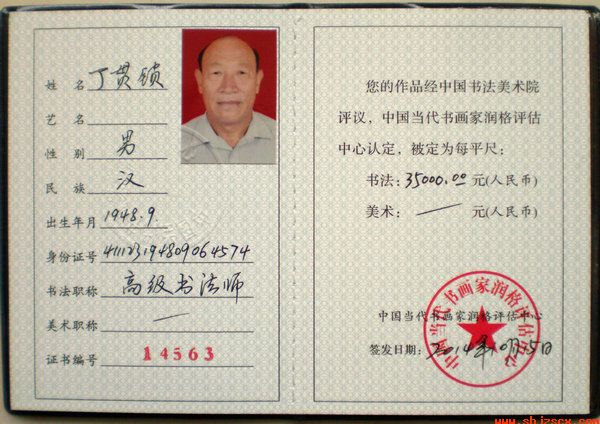 姓名 丁贯锁
艺名
性别 男
民族 汉
出生年月 1948.9.
身份证号 411123194809064574
书法职称 高级书法师
美术职称 一
证书编号 14563
您的作品经中国书法美术院
评议，中国当代书画家润格评估
中心认定，被定为每平尺：
书法：35000.00 元(人民币)
美术：— 元(人民币)
中国当代书画家润格评估中心
中国当代书画家润格评估中心
签发日期：2014年10月5日
www.shjzscx.com